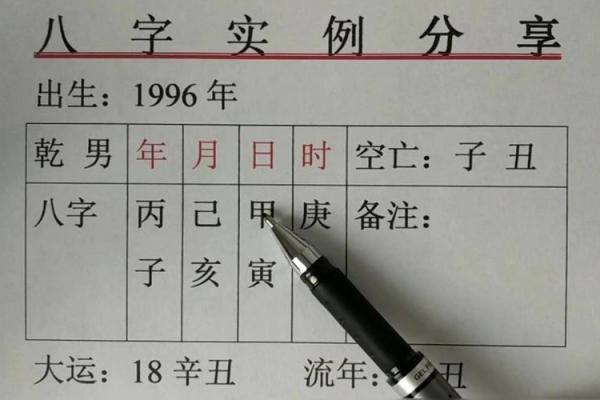 八字实例分享
出生：1996年
乾 男 年 月 日 时 空亡：子 丑
八字 丙 己 甲 庚 备注：
子 亥 寅
大运：18辛丑 流年： 丑